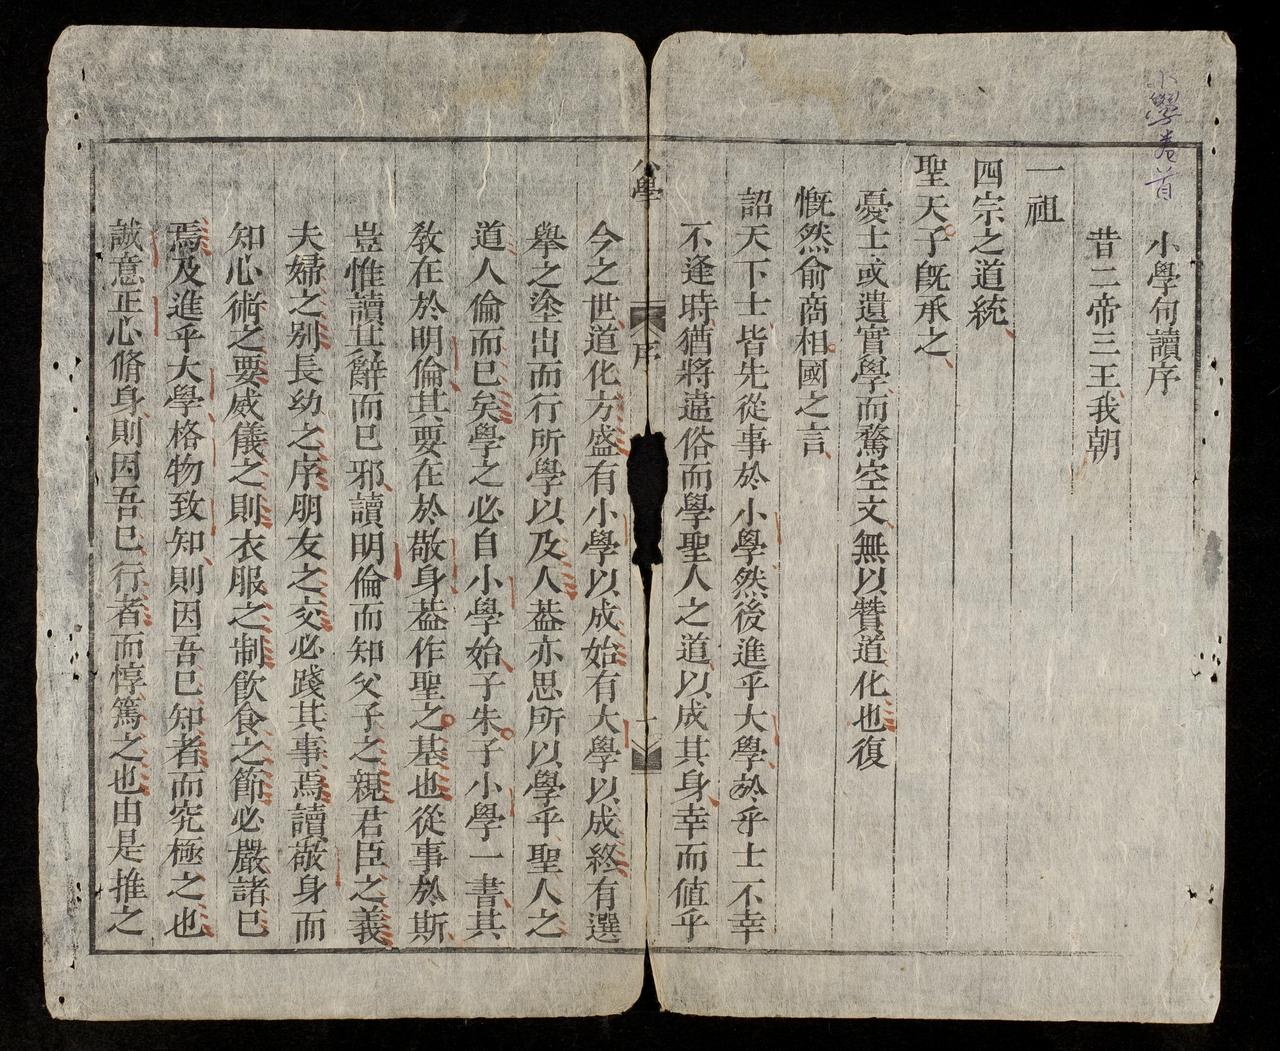 小學卷首
小學句讀序
昔二帝三王我朝
一祖
四宗之道統
聖天子旣承之
憂士或遺實學而騖空文無以贊道化也復
慨然俞商相國之言
詔天下士皆先從事於小學然後進乎大學於乎士不幸
不逢時猶將違俗而學聖人之道以成其身幸而値乎
小學 序 一
今之世道化方盛有小學以成始有大學以成終有選
舉之塗出而行所學以及人葢亦思所以學乎聖人之
道人倫而已矣學之必自小學始子朱子小學一書其
敎在於明倫其要在於敬身葢作聖之基也從事於斯
豈惟讀其辭而已邪讀明倫而知父子之親君臣之義
夫婦之别長幼之序朋友之交必踐其事焉讀敬身而
知心術之要威儀之則衣服之制飮食之節必嚴諸已
焉及進乎大學格物致知則因吾已知者而究極之也
誠意正心脩身則因吾已行者而惇篤之也由是推之